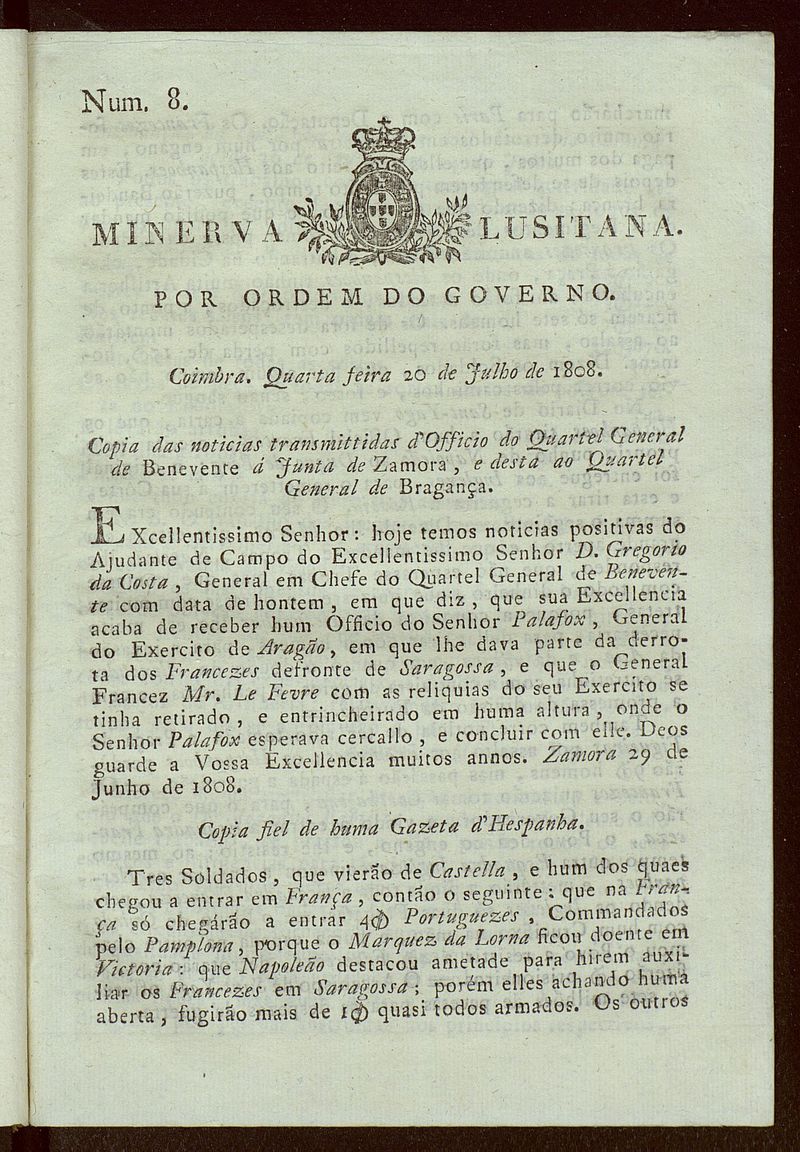 Num. 8.
MINERVA LUSITANA.
POR ORDEM DO GOVERNO.
Coimbra. Quarta feira 20 de Julho de 1808.
Copia das noticias transmittidas d'Officio do Quartel General
de Benevente á Junta de Zamora, e desta ao Quartel
General de Bragança.
EXcellentissimo Senhor: hoje temos noticias positivas do
Ajudante de Campo do Excellentissimo Senhor D. Gregorio
da Costa, General em Chefe do Quartel General de Beneven-
te com data de hontem, em que diz, que sua Excellencia
acaba de receber hum Officio do Senhor Palafox, General
do Exercito de Aragão, em que lhe dava parte da derro-
ta dos Francezes defronte de Saragossa, e que o General
Francez Mr. Le Fevre com as reliquias do seu Exercito se
tinha retirado, e entrincheirado em huma altura, onde o
Senhor Palafox esperava cercallo, e concluir com elle. Deos
guarde a Vossa Excellencia muitos annos. Zamora 29 de
Junho de 1808.
Copia fiel de huma Gazeta d'Hespanha.
Tres Soldados, que vierão de Castella, e hum dos quaes
chegou a entrar em França, contão o seguinte: que na Fran-
ça só chegárão a entrar 4𝕌 Portuguezes, Commandados
pelo Pamplona, porque o Marquez da Lorna ficou doente em
Victoria: que Napoleão destacou ametade para hirem auxi-
liar os Francezes em Saragossa; porém elles achando huma
aberta, fugirão mais de 1𝕌 quasi todos armados. Os outros